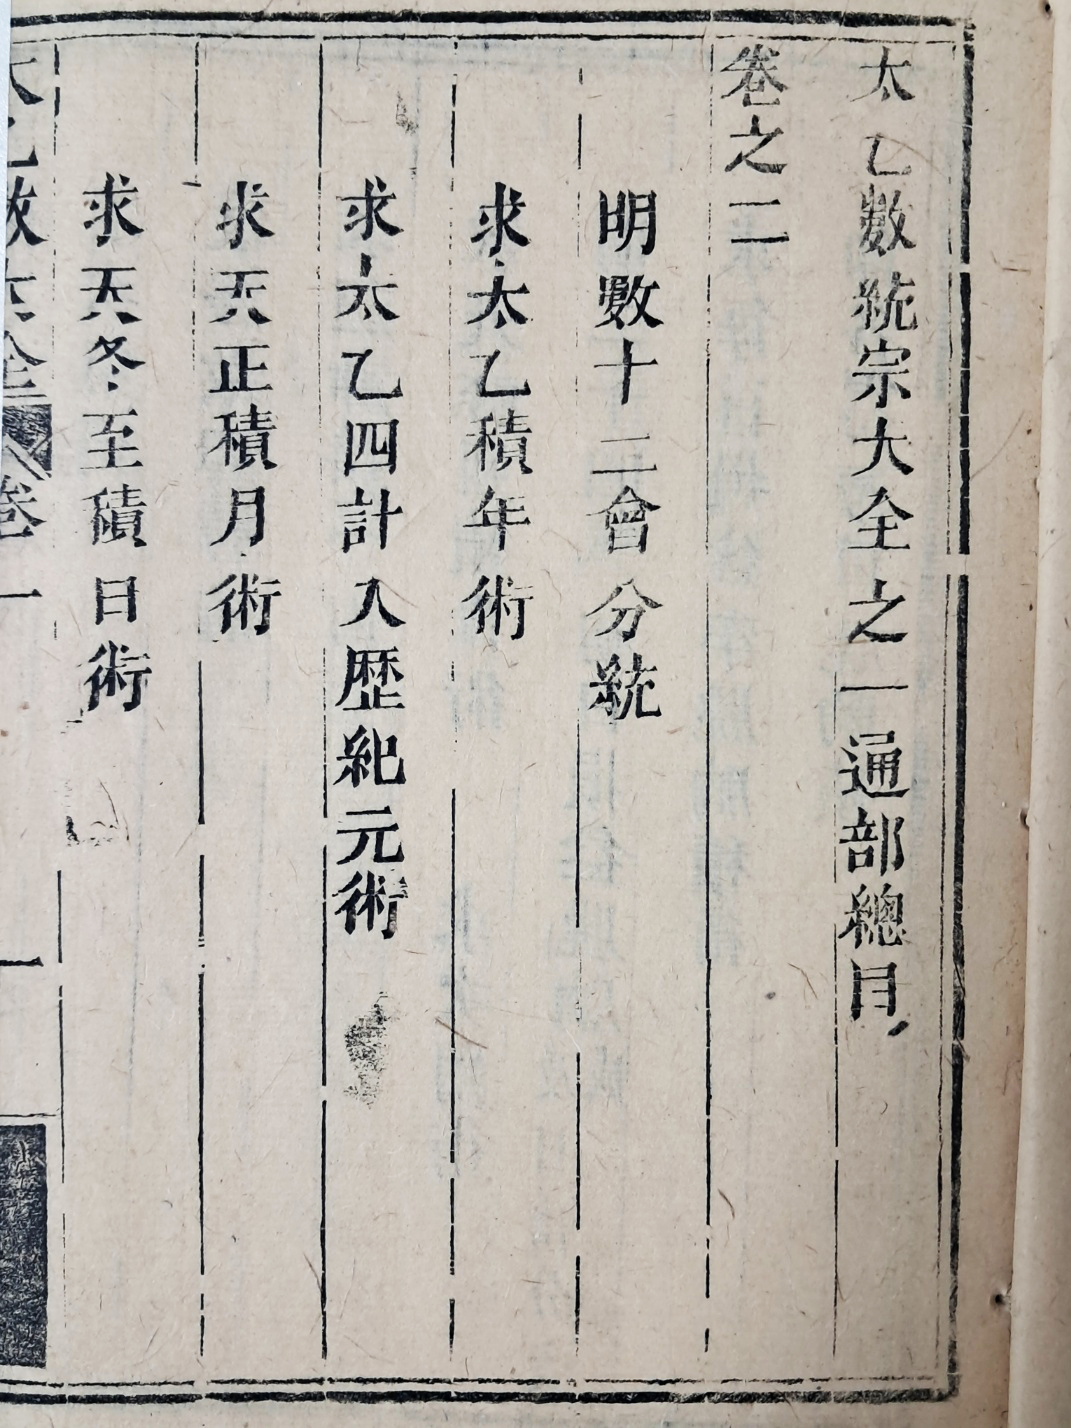 太乙數統宗大全之一通部總目
卷之二
明數十二會分統
求太乙積年術
求太乙四計入歷紀元術
求天正積月術
求天冬至積日術
太乙數大全 卷一 一